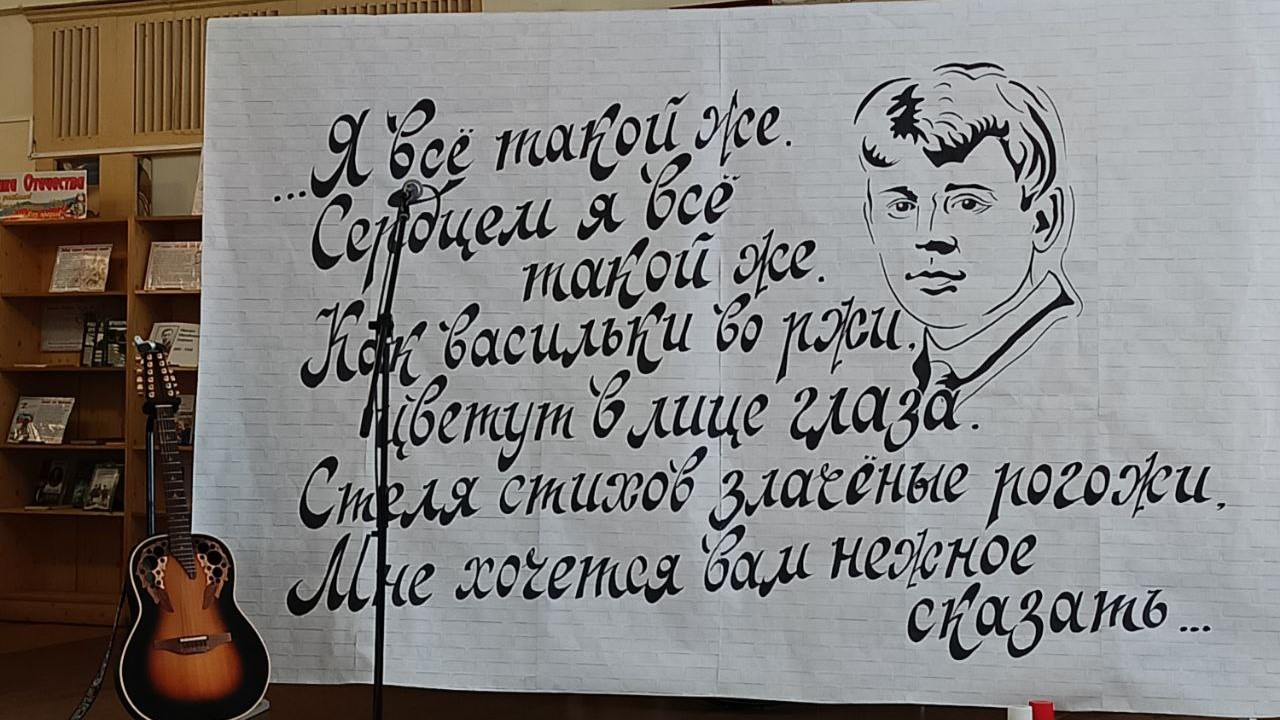 ...Я всё такой же.
Сердцем я всё
такой же.
Как васильки во ржи,
цветут в лице глаза.
Стеля стихов злачёные рогожи,
Мне хочется вам нежное
сказать...
Отечества